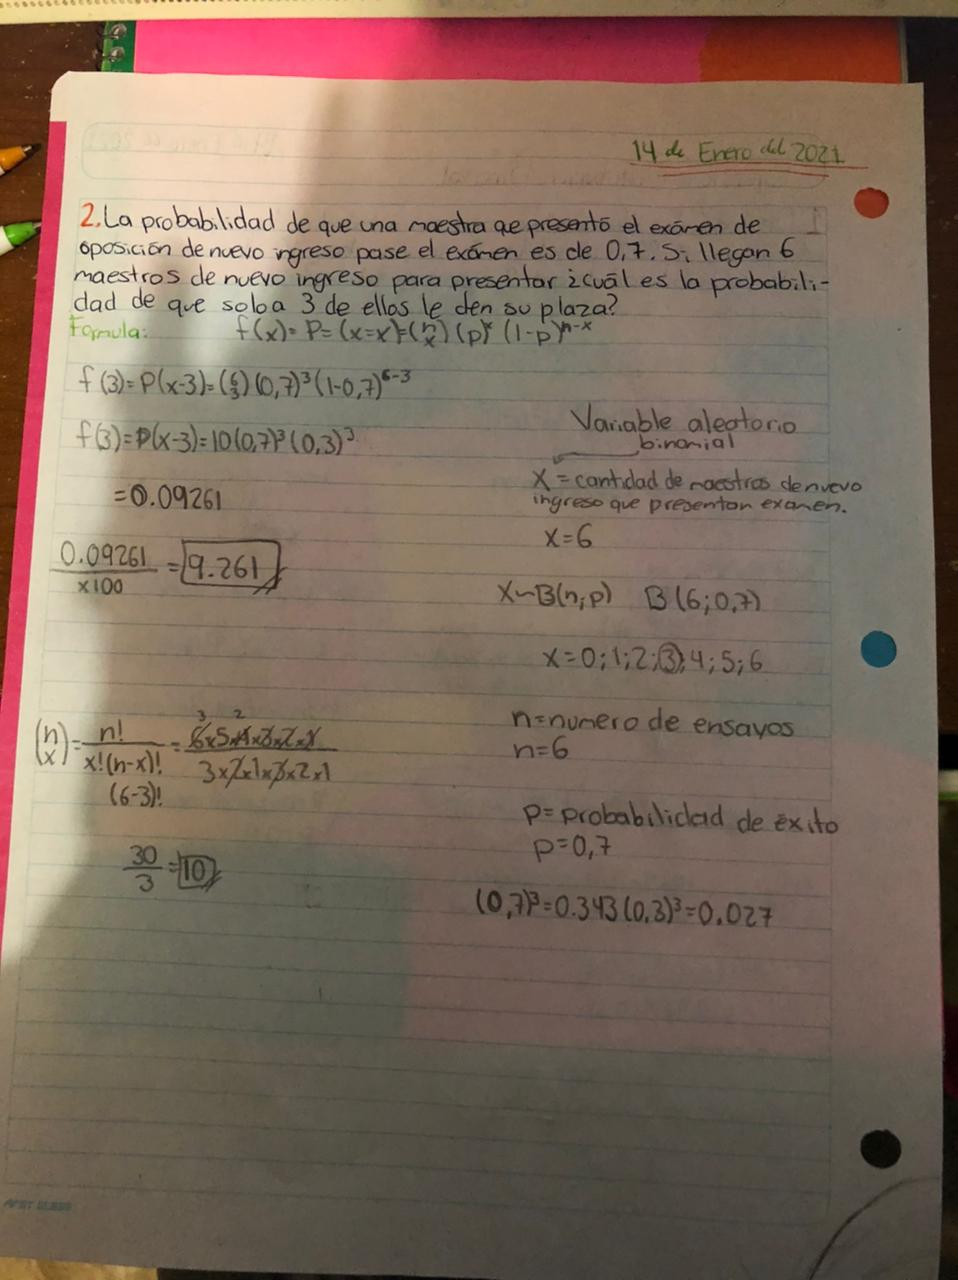 14 de Enero del 2021
2. La probabilidad de que una maestra qe presentó el exámen de
oposición de nuevo ingreso pase el exámen es de 0,7. Si llegan 6
maestros de nuevo ingreso para presentar ¿cuál es la probabili-
dad de que solo a 3 de ellos le den su plaza?
Formula: f(x)= P=(x=x)=(n/x) (p)^x (1-p)^n-x
f(3)=P(x-3)=(6/3)(0,7)³(1-0,7)^6-3
f(3)=P(x-3)=10(0,7)³(0,3)³
=0.09261
0.09261/x100 = 9.261
(n/x)=n!/x!(n-x)!=6x5x4x3x2x1/3x2x1x3x2x1
3 2
(6-3)!
30/3=10
Variable aleatorio
binomial
X=cantidad de maestros de nuevo
ingreso que presentan examen.
x=6
X~B(n;p) B(6;0,7)
x=0;1;2;3;4;5;6
n=numero de ensayos
n=6
p=probabilidad de éxito
p=0,7
(0,7)³=0.343(0,3)³=0.027